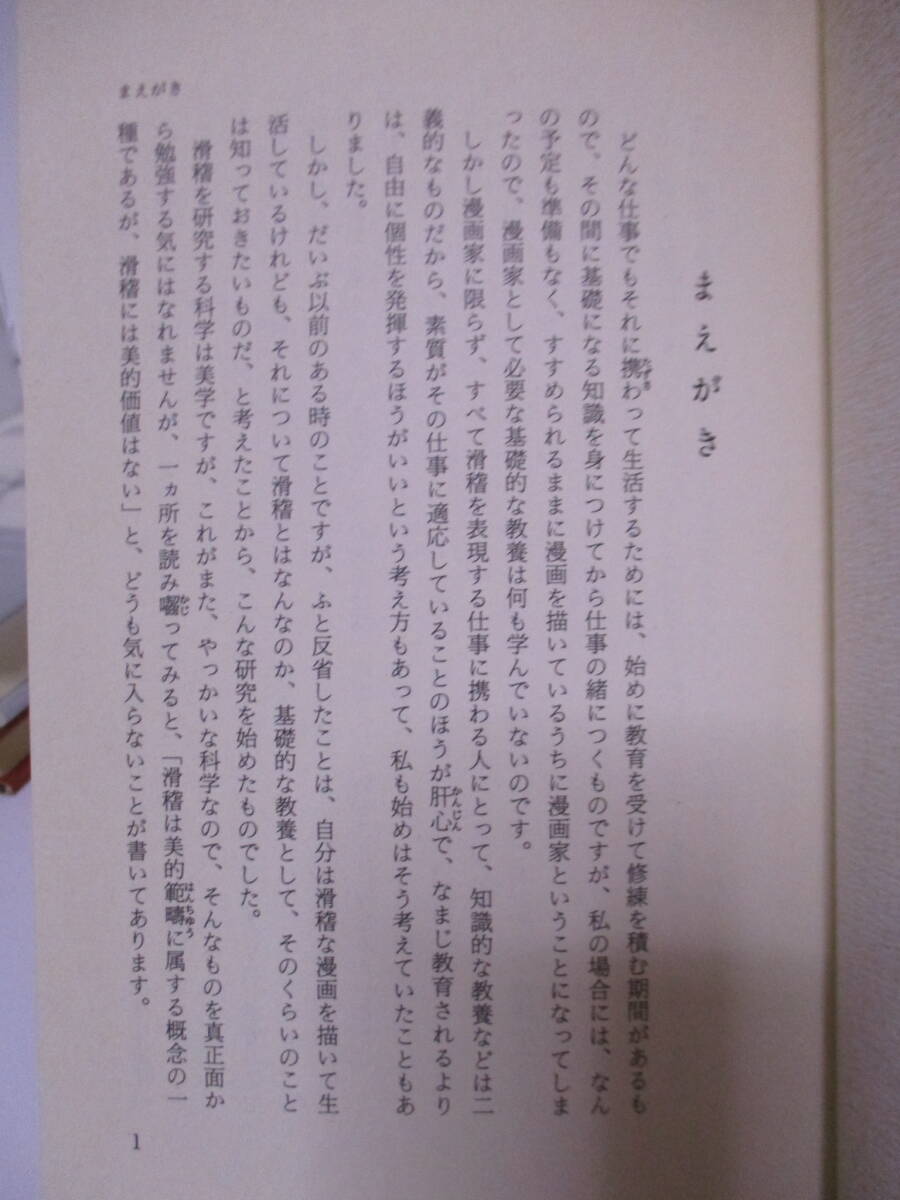 まえがき
まえがき
どんな仕事でもそれに携わって生活するためには、始めに教育を受けて修練を積む期間があるも
たずさ
ので、その間に基礎になる知識を身につけてから仕事の緒につくものですが、私の場合には、なん
の予定も準備もなく、すすめられるままに漫画を描いているうちに漫画家ということになってしま
ったので、漫画家として必要な基礎的な教養は何も学んでいないのです。
しかし漫画家に限らず、すべて滑稽を表現する仕事に携わる人にとって、知識的な教養などは二
義的なものだから、素質がその仕事に適応していることのほうが肝心で、なまじ教育されるより
かんじん
は、自由に個性を発揮するほうがいいという考え方もあって、私も始めはそう考えていたこともあ
りました。
しかし、だいぶ以前のある時のことですが、ふと反省したことは、自分は滑稽な漫画を描いて生
活しているけれども、それについて滑稽とはなんなのか、基礎的な教養として、そのくらいのこと
は知っておきたいものだ、と考えたことから、こんな研究を始めたものでした。
滑稽を研究する科学は美学ですが、これがまた、やっかいな科学なので、そんなものを真正面か
ら勉強する気にはなれませんが、一ヵ所を読み囓ってみると、「滑稽は美的範疇に属する概念の一
かじ
はんちゅう
種であるが、滑稽には美的価値はない」と、どうも気に入らないことが書いてあります。
1